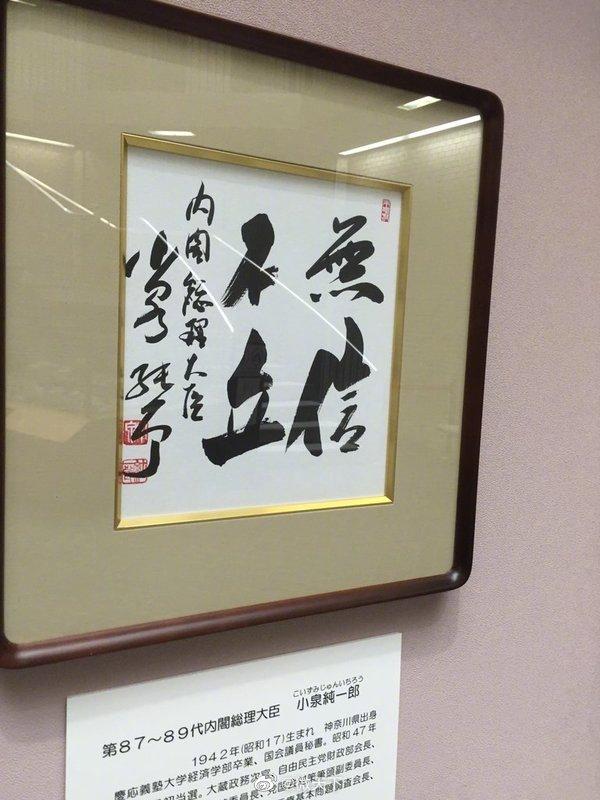 無信
不立
内閣総理大臣
小泉純一郎
こいずみじゅんいちろう
第87～89代内閣総理大臣 小泉純一郎
1942年(昭和17)生まれ 神奈川県出身
慶応義塾大学経済学部卒業、国会議員秘書。昭和47年
初当選。大蔵政務次官、自由民主党財政部会長、
委員長、筆頭副委員長、
基本問題調査会長、